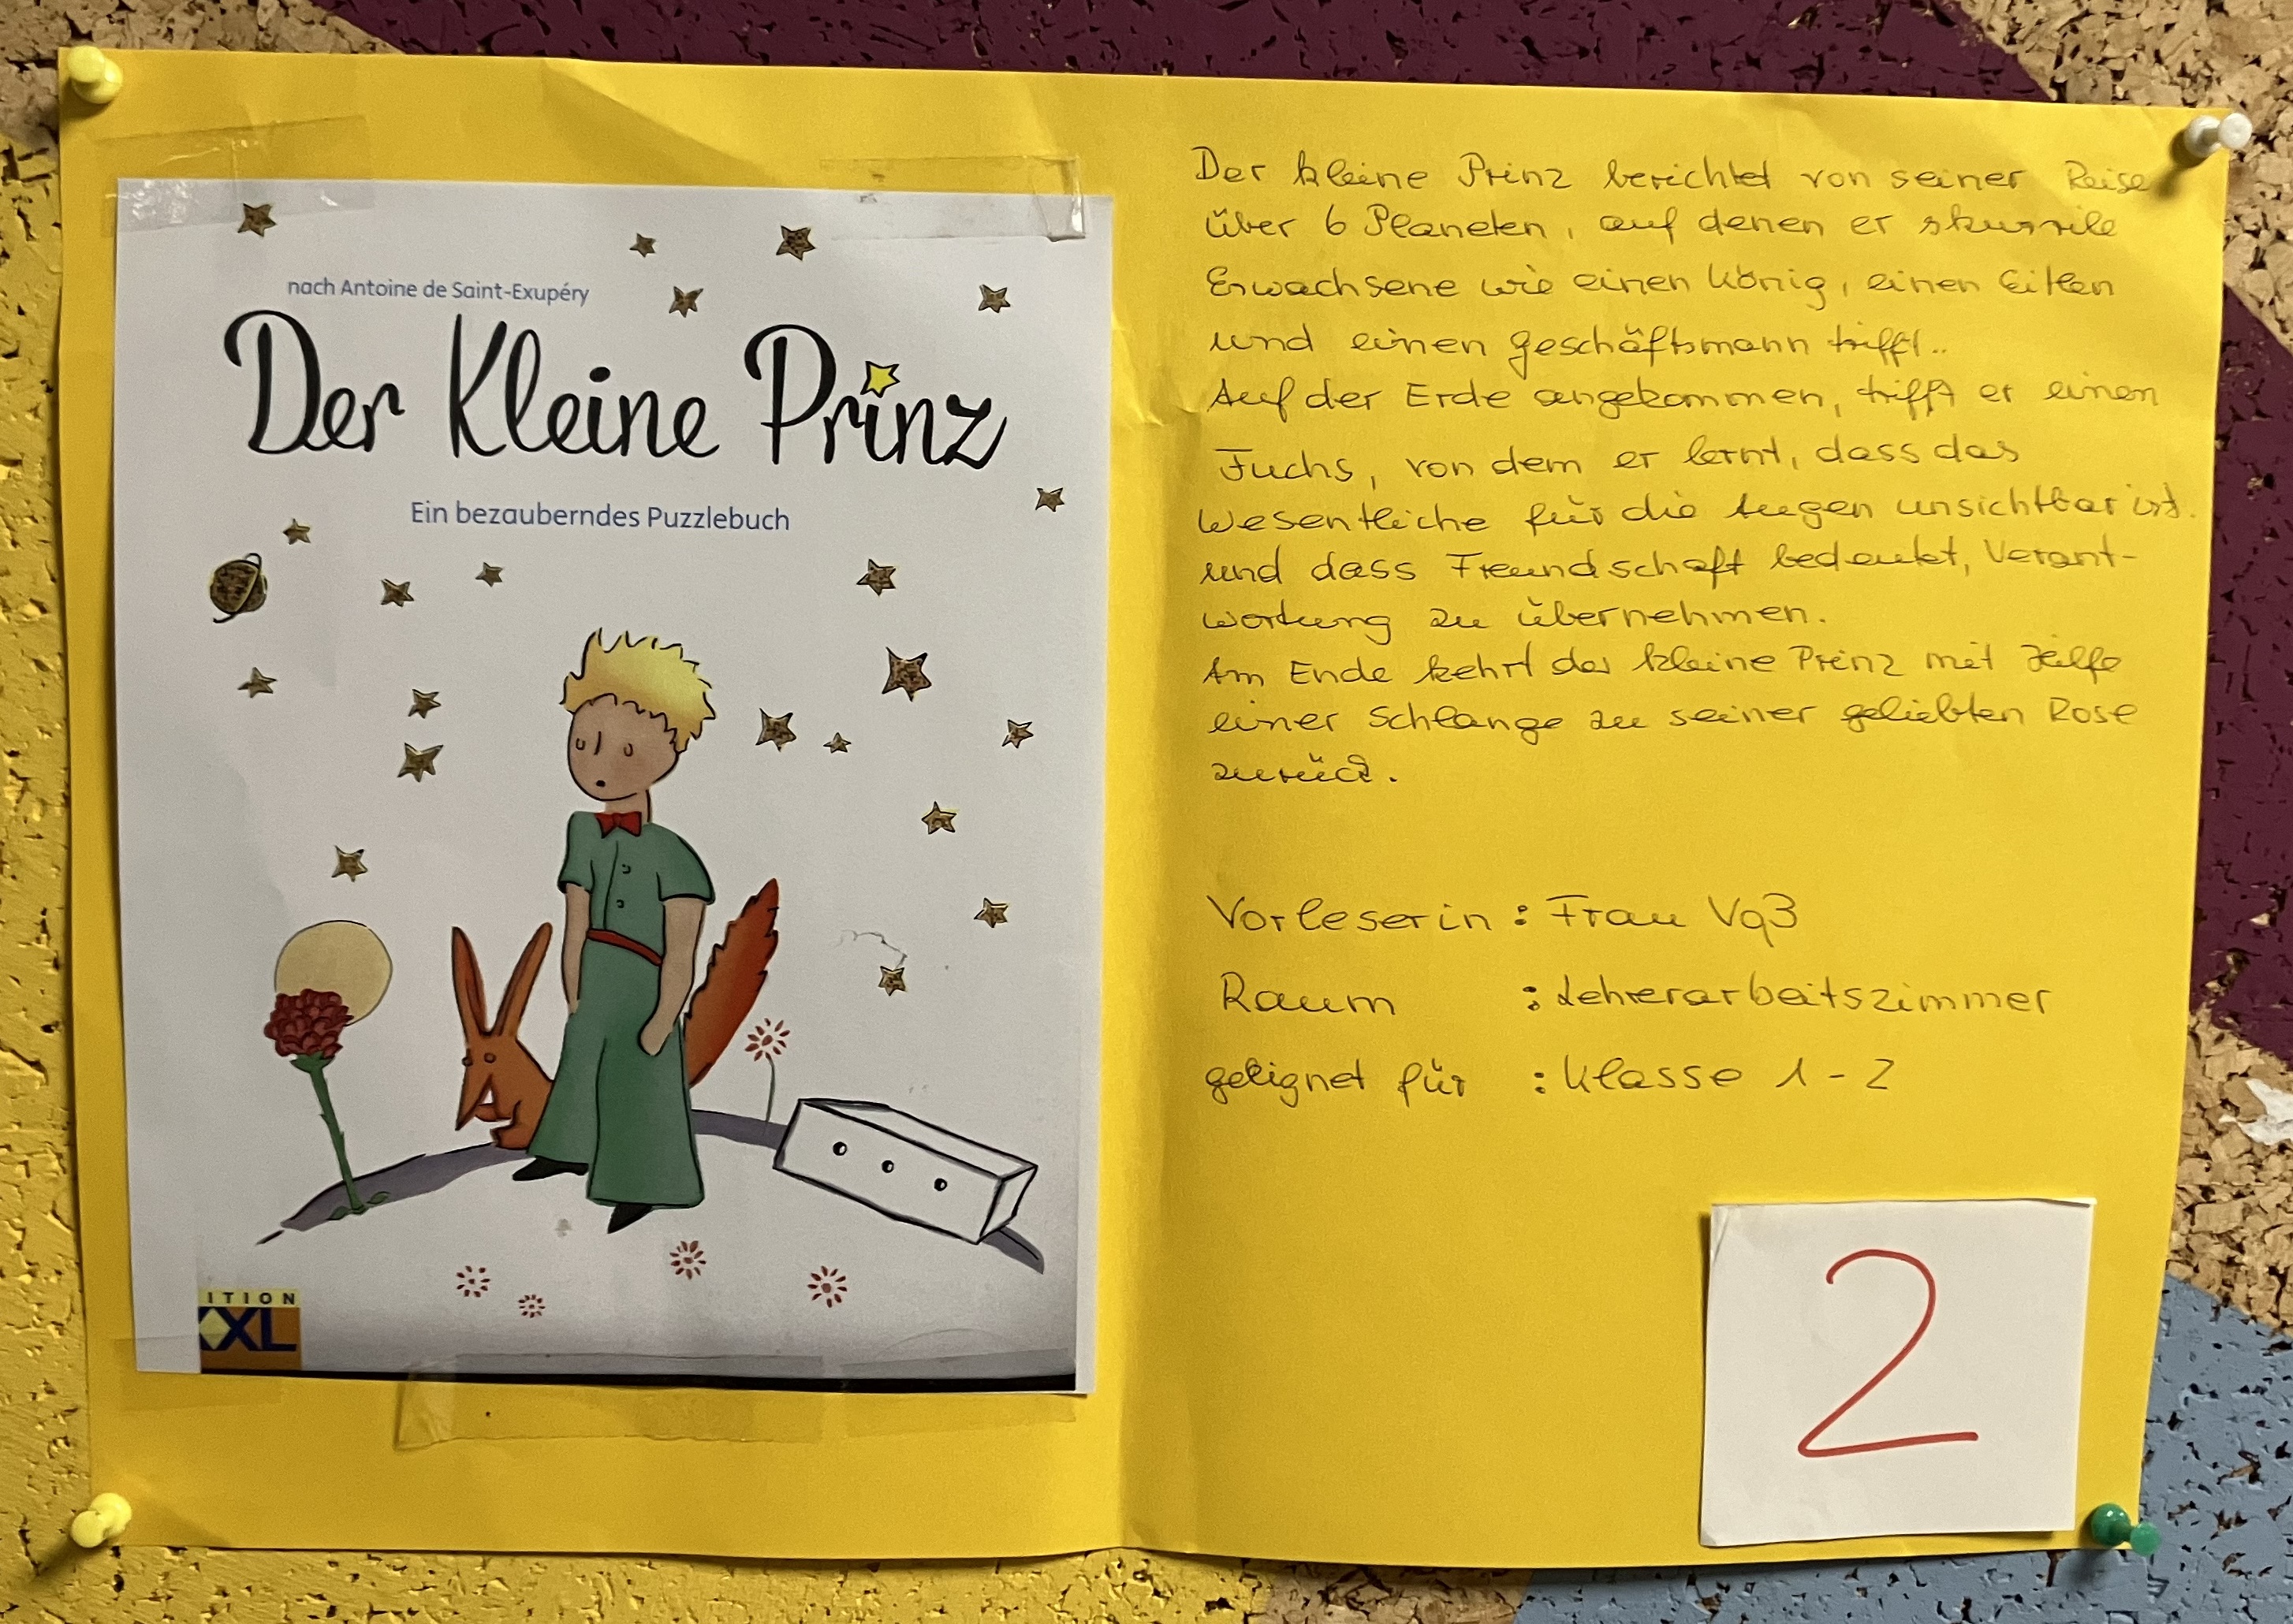 nach Antoine de Saint-Exupéry
Der Kleine Prinz
Ein bezauberndes Puzzlebuch
ITION
XXL
Der kleine Prinz berichtet von seiner Reise
über 6 Planeten, auf denen er skurrile
Erwachsene wie einen König, einen Eitlen
und einen Geschäftsmann trifft..
Auf der Erde angekommen, trifft er einen
Fuchs, von dem er lernt, dass das
Wesentliche für die Augen unsichtbar ist.
und dass Freundschaft bedeutet, Verant-
wortung zu übernehmen.
Am Ende kehrt der kleine Prinz mit Hilfe
einer Schlange zu seiner geliebten Rose
zurück.
Vorleserin : Frau
Raum : Lehrerarbeitszimmer
geeignet für : Klasse 1-2
2